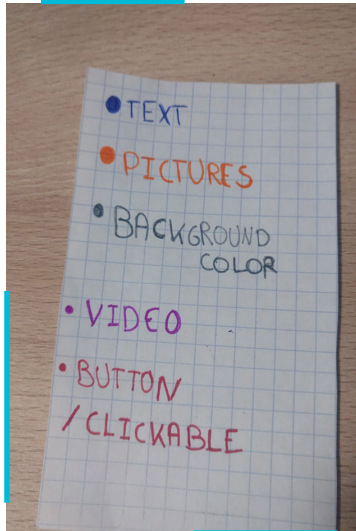 • TEXT
• PICTURES
• BACKGROUND
COLOR
• VIDEO
• BUTTON
/CLICKABLE